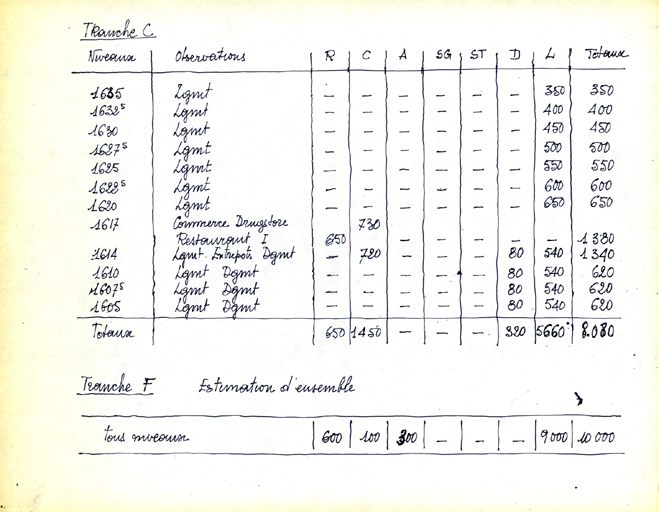 Tranche C.
Niveaux Observations R C A SG ST D L Totaux
1635 Lgmt — — — — — — 350 350
1632⁵ Lgmt — — — — — — 400 400
1630 Lgmt — — — — — — 450 450
1627⁵ Lgmt — — — — — — 500 500
1625 Lgmt — — — — — — 550 550
1622⁵ Lgmt — — — — — — 600 600
1620 Lgmt — — — — — — 650 650
1617 Commerce Drugstore 730
Restaurant I 650 — — — — — 1380
1614 Lgmt. Entrepôts Dgmt — 720 — — — 80 540 1340
1610 Lgmt Dgmt — — — — — 80 540 620
1607⁵ Lgmt Dgmt — — — — — 80 540 620
1605 Lgmt Dgmt — — — — — 80 540 620
Totaux 650 1450 — — — 320 5660 8.080
Tranche F Estimation d'ensemble
Tous niveaux 600 100 300 — — — 9000 10 000